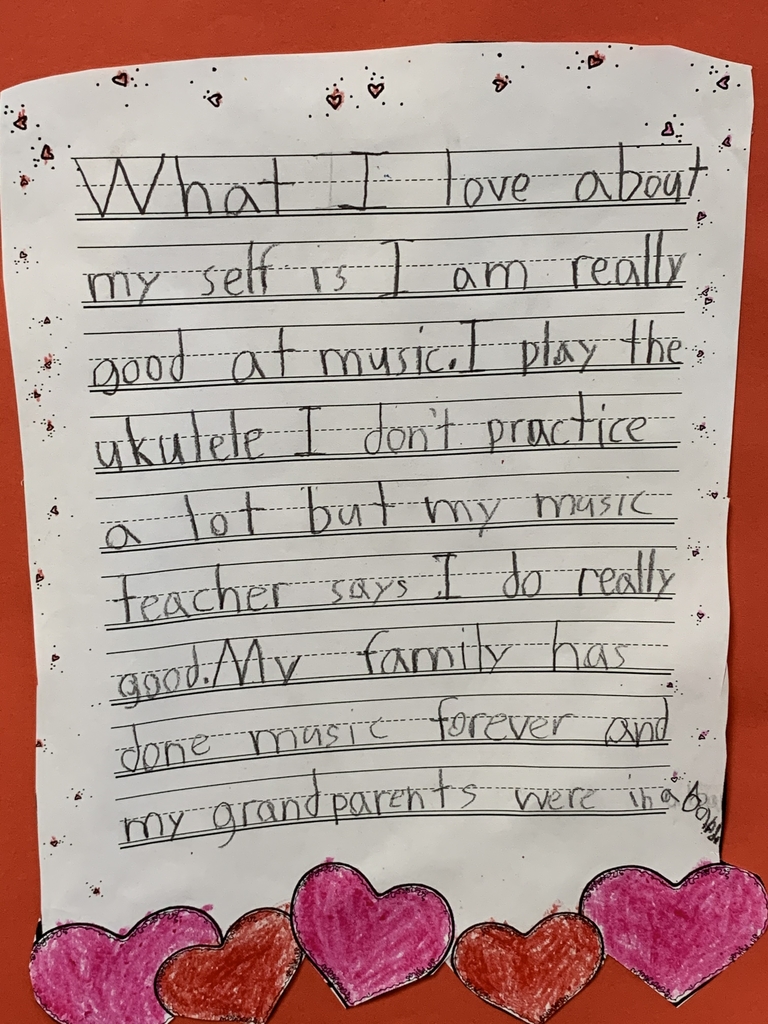 What I love about
my self is I am really
good at music. I play the
ukulele I don't practice
a lot but my music
teacher says I do really
good. My family has
done music forever and
my grandparents were in a